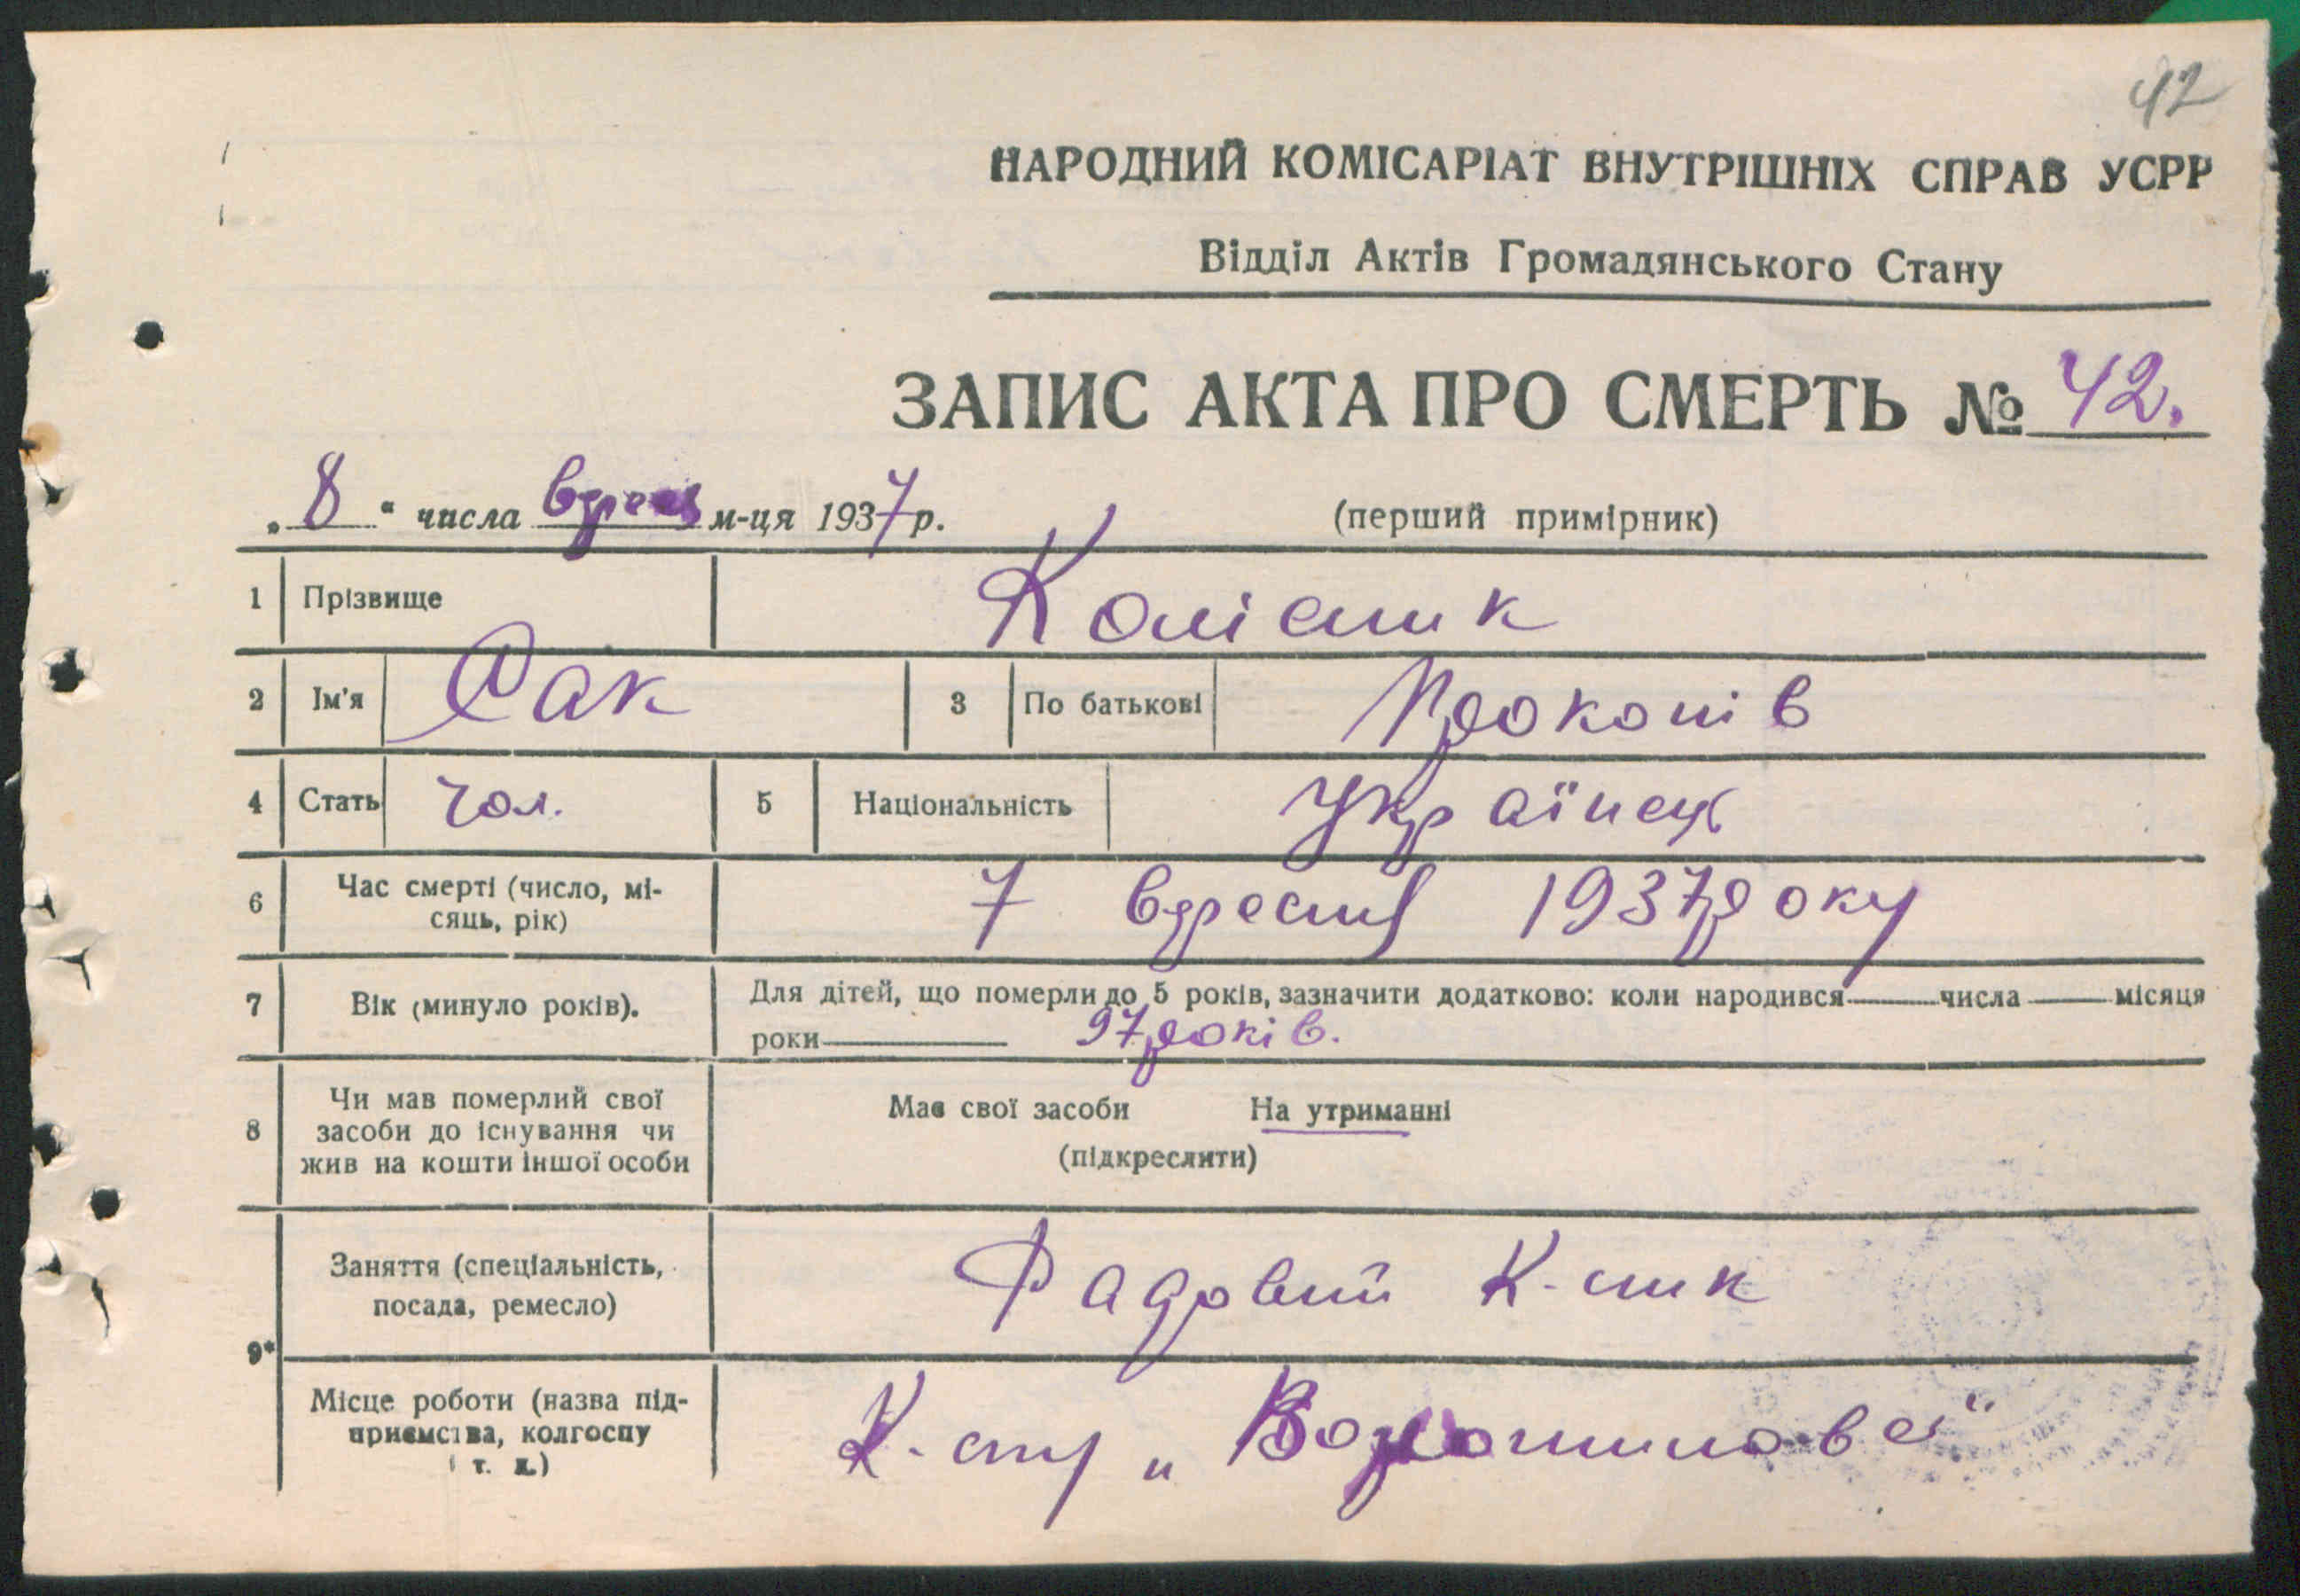 42
НАРОДНИЙ КОМІСАРІАТ ВНУТРІШНІХ СПРАВ УСРР
Відділ Актів Громадянського Стану
ЗАПИС АКТА ПРО СМЕРТЬ № 42.
„8“ числа вересня м-ця 1937 р. (перший примірник)
1 Прізвище Колісник
2 Ім'я Сак 3 По батькові Прокопів
4 Стать Чол. 5 Національність Українець
6 Час смерті (число, мі-
сяць, рік) 7 вересня 1937 року
7 Вік (минуло років). Для дітей, що померли до 5 років, зазначити додатково: коли народився числа місяця
роки 97 років.
8 Чи мав померлий свої
засоби до існування чи
жив на кошти іншої особи
Мав свої засоби На утриманні
(підкреслити)
9*
Заняття (спеціальність,
посада, ремесло) Рядовий К-ник
Місце роботи (назва під-
приємства, колгоспу
і т. д.) К-спу „Ворошилова“